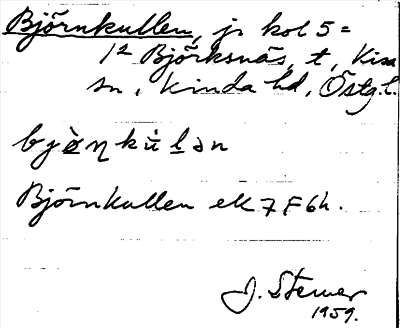 Björnkullen, jr kol 5 =
1² Björksnäs, t, Kisa
sn, Kinda hd, Östg.l.
bjø̀ŋkù̇lən
Björnkullen ek 7 F 6h.
J. Sterner
1959.